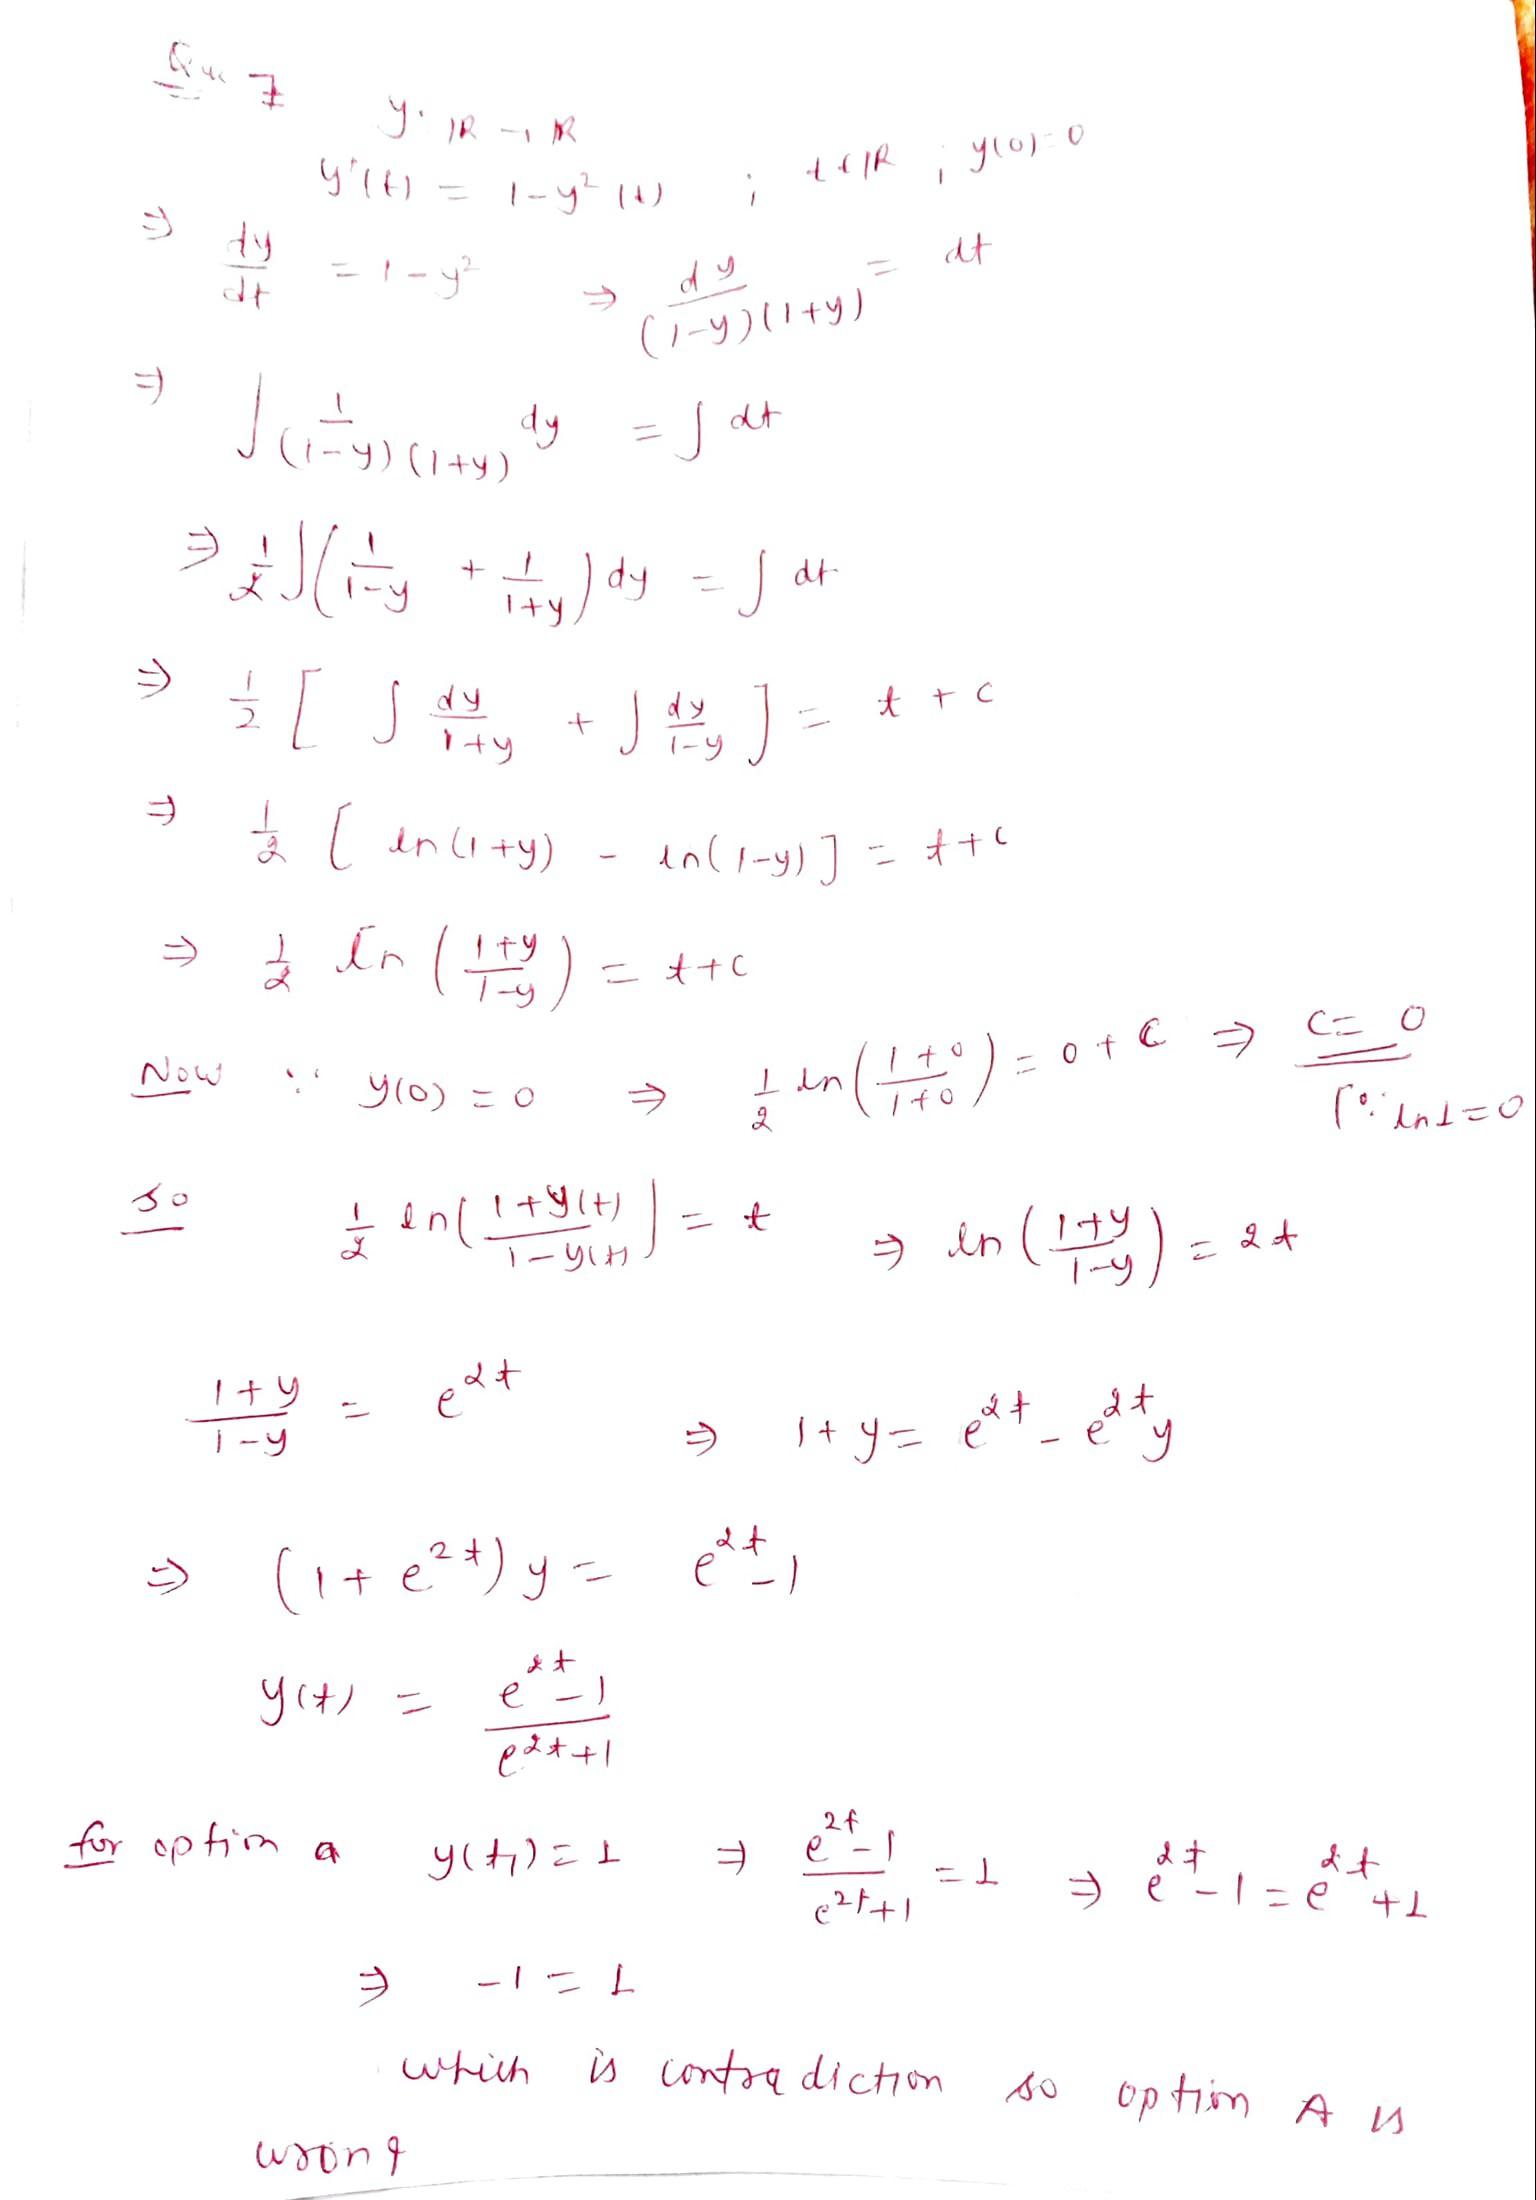 Que 7
y: ℝ → ℝ
y'(t) = 1 - y²(t) ; t ∈ ℝ ; y(0) = 0
⇒ dy/dt = 1 - y² ⇒ dy/((1-y)(1+y)) = dt
⇒ ∫ 1/((1-y)(1+y)) dy = ∫ dt
⇒ 1/2 ∫ (1/(1-y) + 1/(1+y)) dy = ∫ dt
⇒ 1/2 [ ∫ dy/(1+y) + ∫ dy/(1-y) ] = t + c
⇒ 1/2 [ ln(1+y) - ln(1-y) ] = t + c
⇒ 1/2 ln((1+y)/(1-y)) = t + c
Now ∵ y(0) = 0 ⇒ 1/2 ln((1+0)/(1+0)) = 0 + C ⇒ C = 0
[∵ ln1 = 0
so 1/2 ln((1+y(t))/(1-y(t))) = t ⇒ ln((1+y)/(1-y)) = 2t
(1+y)/(1-y) = e^{2t} ⇒ 1 + y = e^{2t} - e^{2t}y
⇒ (1 + e^{2t}) y = e^{2t} - 1
y(t) = (e^{2t} - 1)/(e^{2t} + 1)
for option a y(t₁) = 1 ⇒ (e^{2t} - 1)/(e^{2t} + 1) = 1 ⇒ e^{2t} - 1 = e^{2t} + 1
⇒ -1 = 1
which is contradiction so option A is
wrong